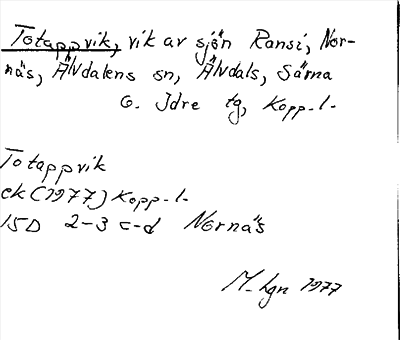 Totappvik, vik av sjön Ransi, Nor-
näs, Älvdalens sn, Älvdals, Särna
o. Idre tg, Kopp-l.
Totappvik
ek (1977) Kopp-l.
15D 2-3 c-d Nornäs
M-lgn 1977